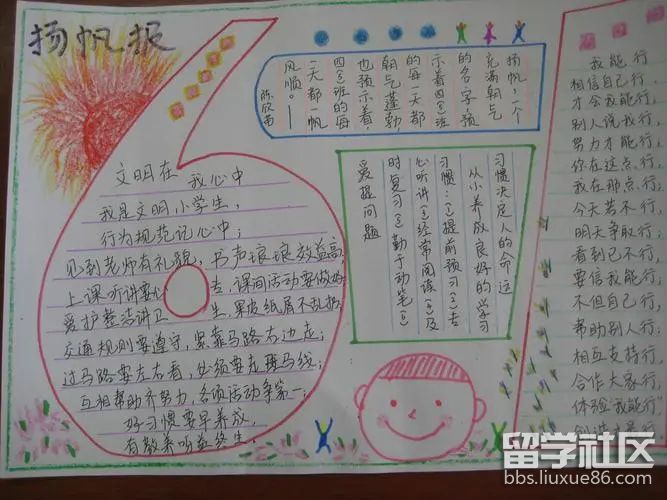 扬帆报
扬帆，一个
充满朝气
的名字，预
示着四(3)班
的每一天都
朝气蓬勃，
也预示着，
四(3)班的每
一天都一帆
风顺。——
文明在我心中
我是文明小学生，
行为规范记心中；
见到老师有礼貌，书声琅琅效益高，
上课听讲要 去，课间活动要做好，
爱护整洁讲卫生，果皮纸屑不乱扔，
交通规则要遵守，紧靠马路右边走；
过马路要左右看，必须要走斑马线；
互相帮助齐努力，各项活动争第一；
好习惯要早养成，
有教养听 终生。
习惯决定人的命运
从小养成良好的学习
习惯：(1)提前预习(2)专
心听讲(3)经常阅读(4)及
时复习(5)勤于动笔(6)
爱提问题
我能行
相信自己行，
才会我能行，
别人说我行，
努力才能行，
你在这点行，
我在那点行，
今天若不行，
明天争取行；
看到己不行，
要信我能行，
不但自己行，
帮助别人行，
相互支持行，
合作大家行，
体验"我能行"
创造才最行。
留学社区
bbs.liuxue86.com